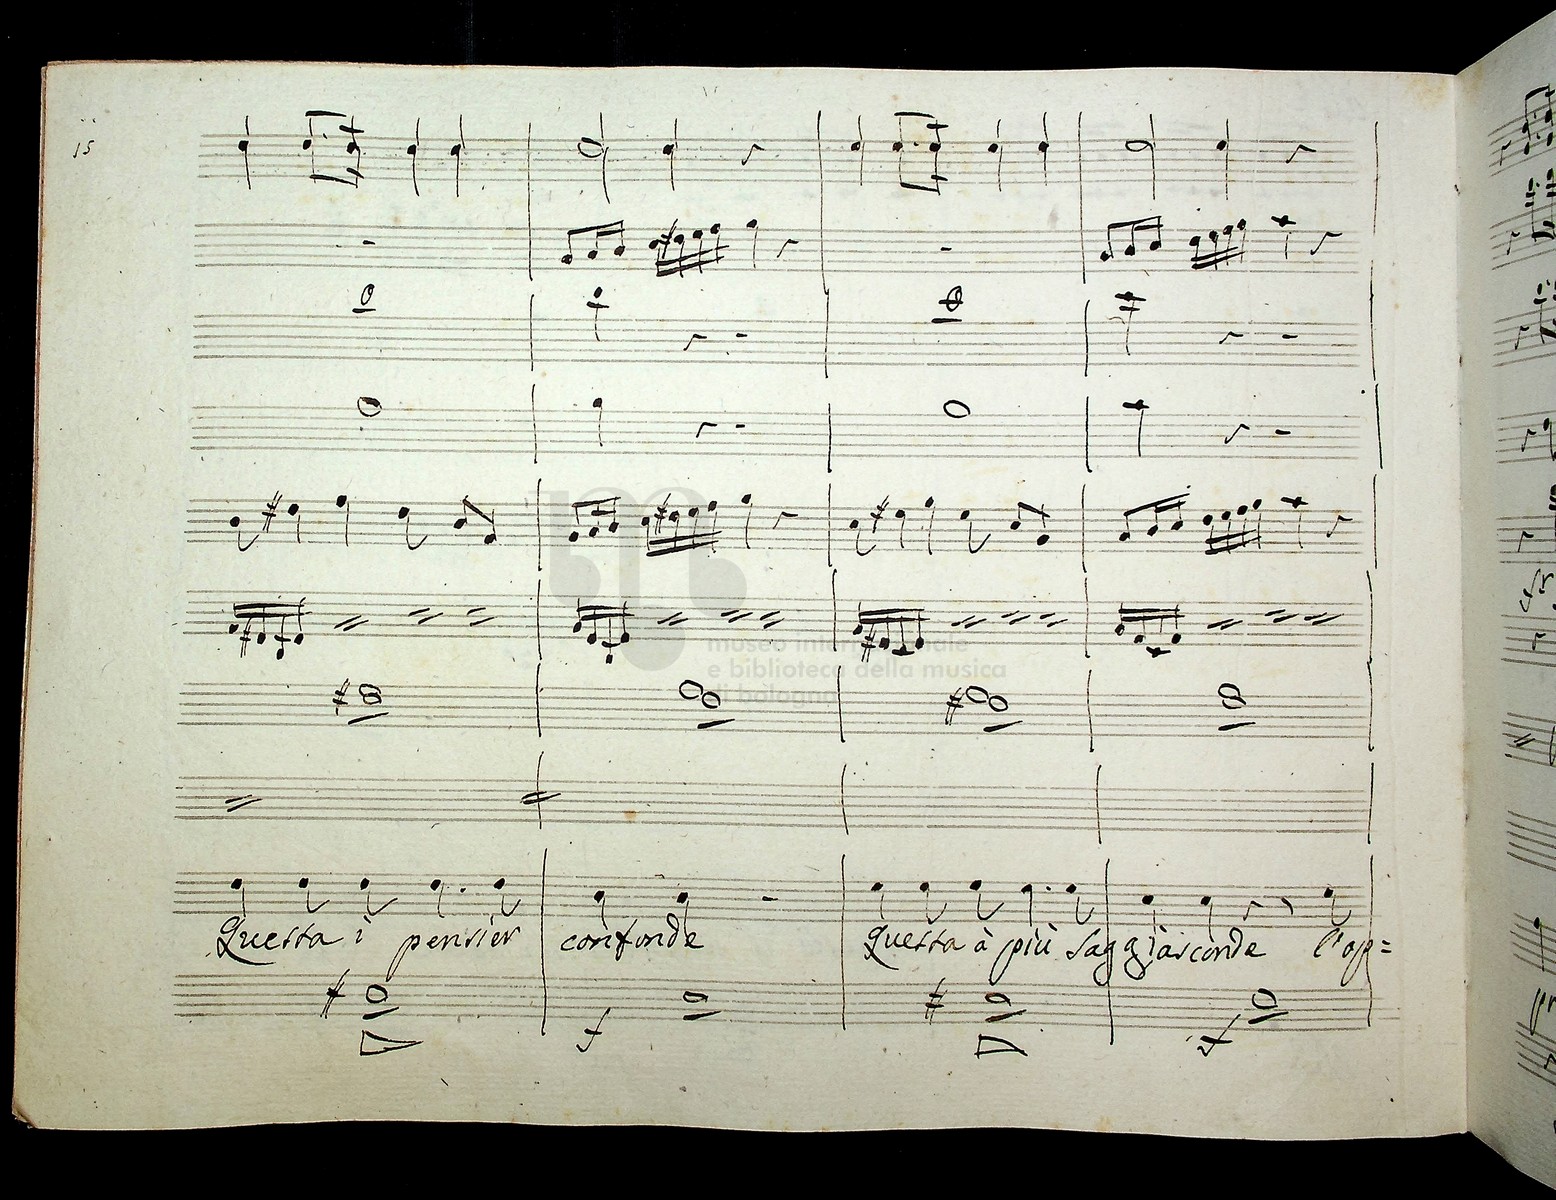 15
museo internazionale
e biblioteca della musica
di bologna
Questa i pensier confonde Questa à più saggi asconde l'op=
f f